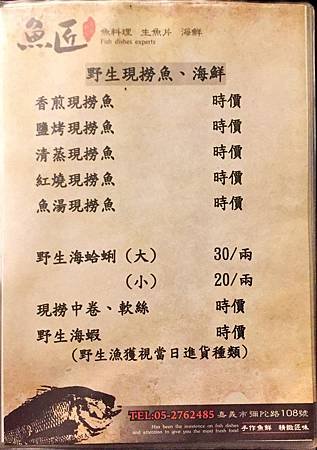 魚匠 魚料理 生魚片 海鮮
Fish dishes experts
野生現撈魚、海鮮
香煎現撈魚 時價
鹽烤現撈魚 時價
清蒸現撈魚 時價
紅燒現撈魚 時價
魚湯現撈魚 時價
野生海蛤蜊(大) 30/兩
(小) 20/兩
現撈中卷、軟絲 時價
野生海蝦 時價
(野生漁獲視當日進貨種類)
TEL:05-2762485 嘉義市彌陀路108號
Has been the insistence on fish dishes
and attention to give you the most fresh food
手作魚鮮 精緻匠味